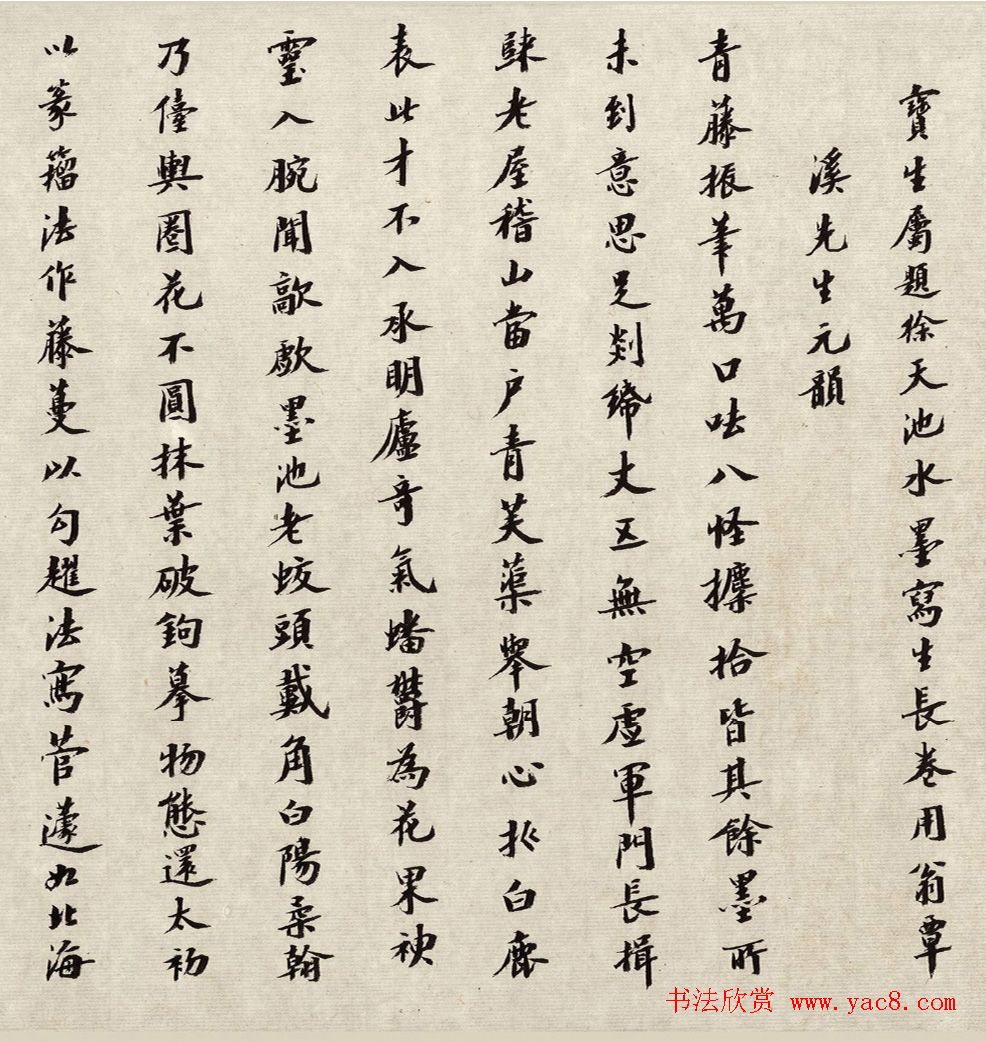 寶生屬題徐天池水墨寫生長卷用翁覃
溪先生元韻
青藤振筆萬口呿八怪攗拾皆其餘墨所
未到意思足剡綈丈五無空虛軍門長揖
歸老屋稽山當户青芙蕖舉朝心折白鹿
表此才不入承明廬奇氣蟠鬱為花果神
靈入腕聞歊歔墨池老蛟頭戴角白陽柔翰
乃儓輿圈花不圓抹葉破鉤摹物態還太初
以篆籀法作藤蔓以勾趯法寫菅蘧如北海
书法欣赏 www.yac8.com